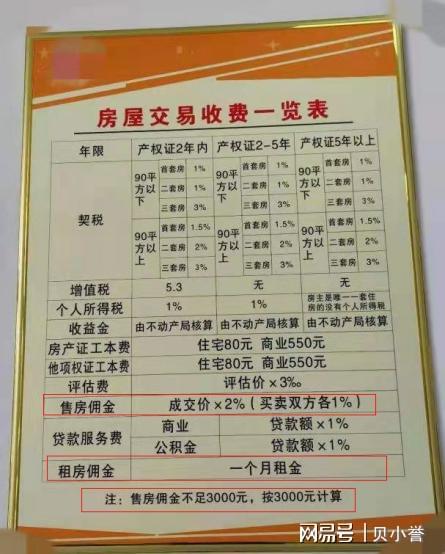 房屋交易收费一览表
年限 产权证2年内 产权证2-5年 产权证5年以上
契税
90平方以下 首套房 1% 90平方以下 首套房 1% 90平方以下 首套房 1%
二套房 1% 二套房 1% 二套房 1%
三套房 3% 三套房 3% 三套房 3%
90平方以上 首套房 1.5% 90平方以上 首套房 1.5% 90平方以上 首套房 1.5%
二套房 2% 二套房 2% 二套房 2%
三套房 3% 三套房 3% 三套房 3%
增值税 5.3 无 无
个人所得税 1% 1% 房主是唯一一套住房的没有个人所得税
收益金 由不动产局核算 由不动产局核算 由不动产局核算
房产证工本费 住宅80元 商业550元
他项权证工本费 住宅80元 商业550元
评估费 评估价×3‰
售房佣金 成交价×2%(买卖双方各1%)
贷款服务费 商业 贷款额×1%
公积金 贷款额×1%
租房佣金 一个月租金
注：售房佣金不足3000元，按3000元计算
网易号 | 贝小誉